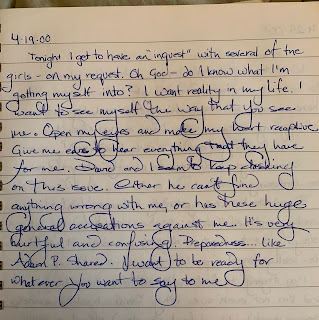 4-19-00
Tonight I get to have an "inquest" with several of the
girls - on my request. Oh God - do I know what I'm
getting myself into? I want reality in my life. I
want to see myself the way that you see
me. Open my eyes and make my heart receptive.
Give me ears to hear everything that they have
for me. Dave and I seem to keep clashing
on this issue. Either he can't find
anything wrong with me, or has these huge
general accusations against me. It's very
hurtful and confusing. Preparedness... like
Adam P. shared. I want to be ready for
whatever you want to say to me